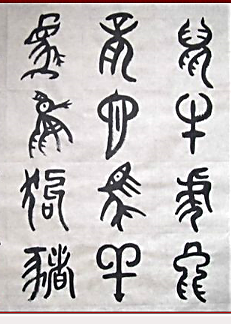 鼠牛虎兔
龍蛇馬羊
猴雞狗豬